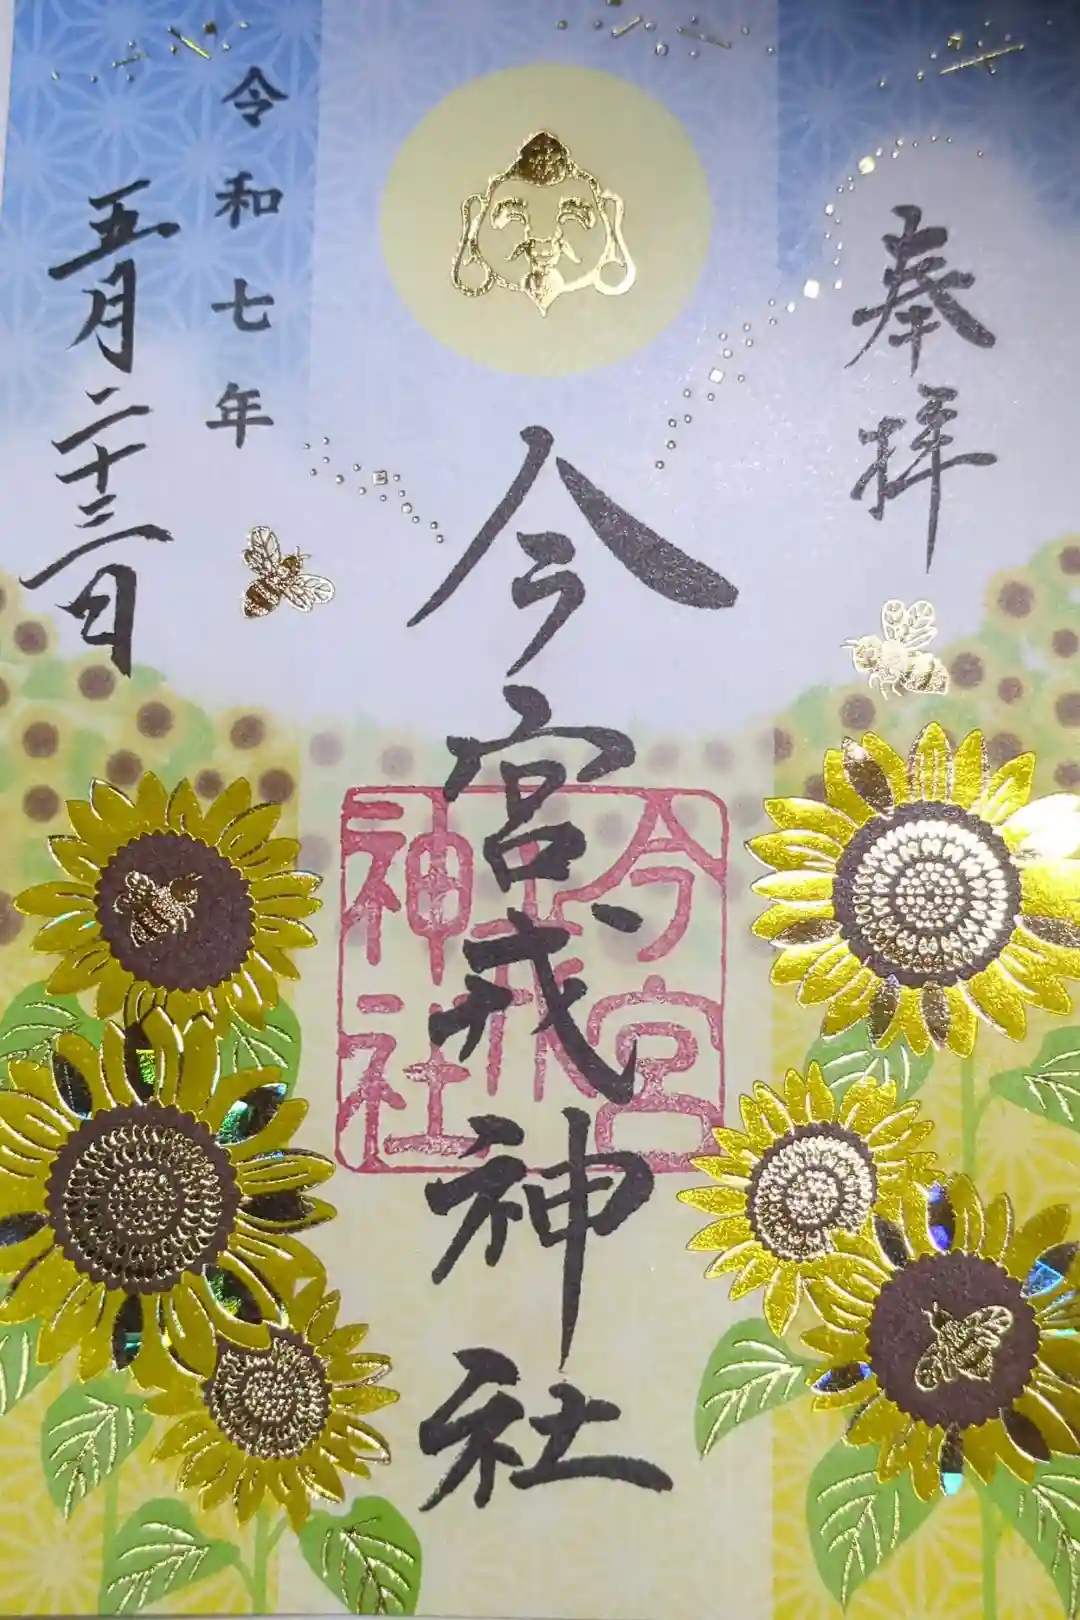 奉拝
今宮戎神社
今宮
戎
神社
令和七年
五月二十三日